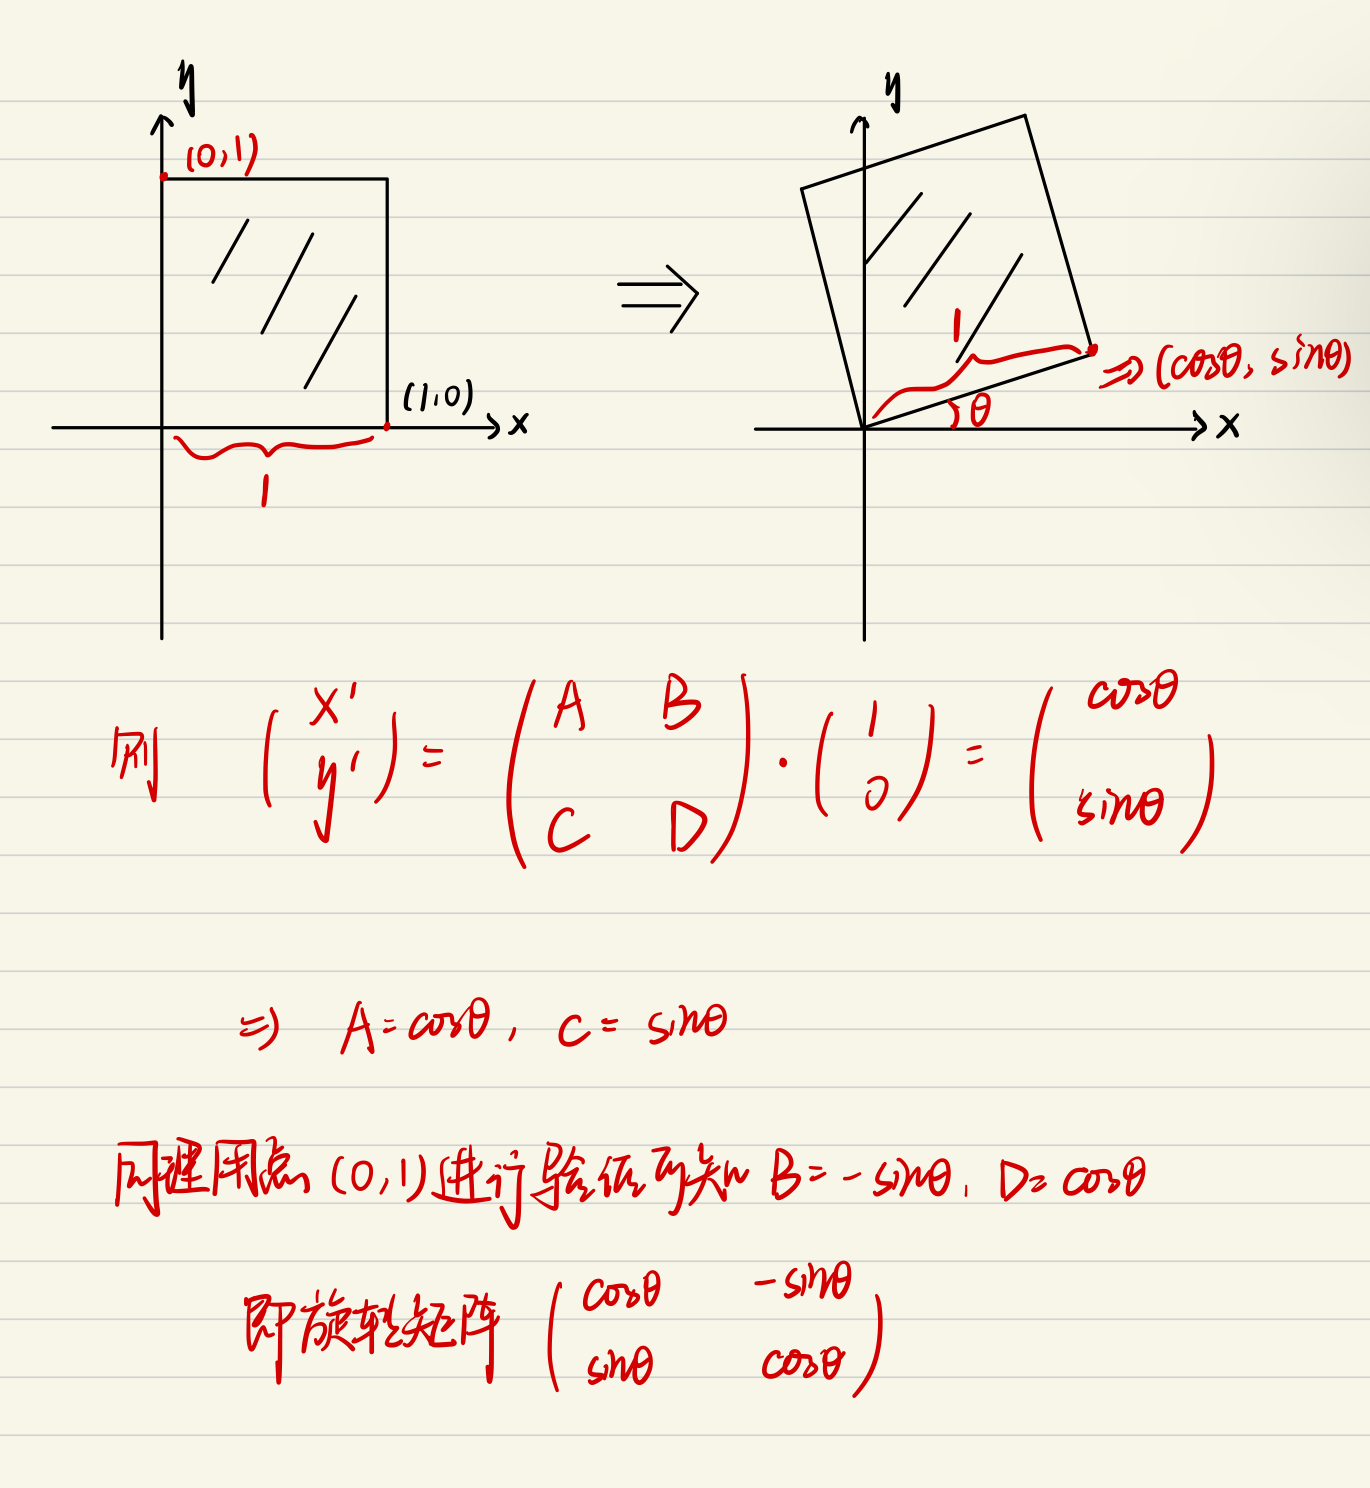 y
(0,1)
(1,0)
x
1
y
1
⇒(cosθ, sinθ)
θ
x
则 (x' y') = (A B C D) · (1 0) = (cosθ sinθ)
⇒ A=cosθ, C=sinθ
同理用点(0,1)进行 可知 B=-sinθ, D=cosθ
即旋转矩阵 (cosθ -sinθ sinθ cosθ)